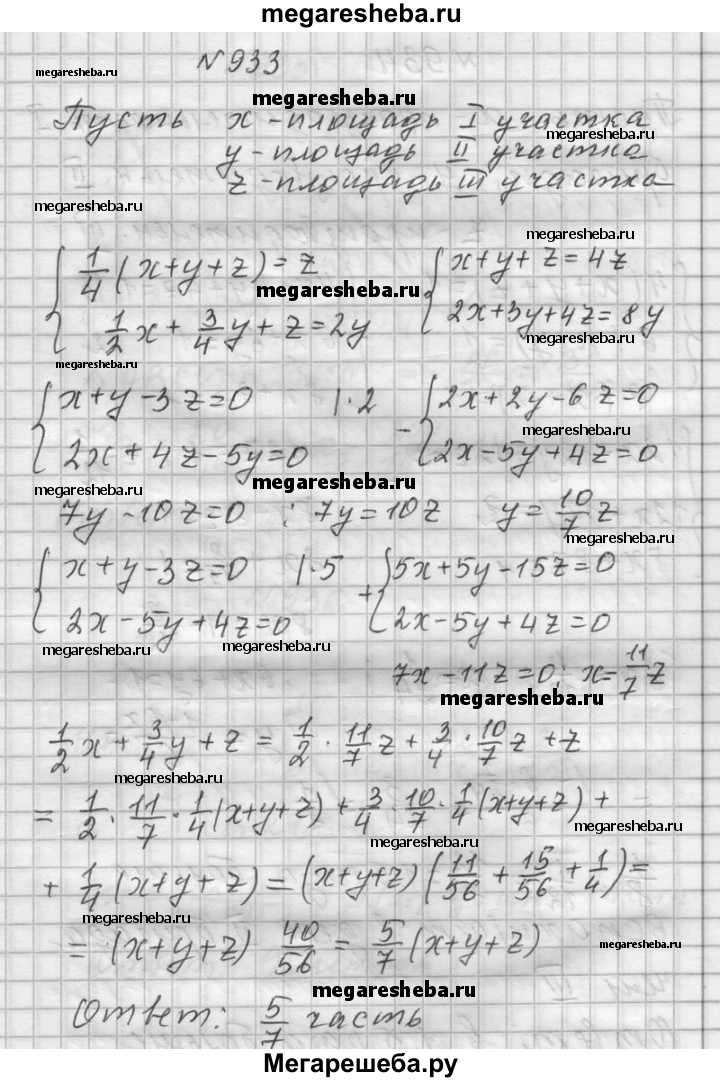 megaresheba.ru
№933
megaresheba.ru
megaresheba.ru
Пусть x - площадь I участка
megaresheba.ru
y - площадь II участка
z - площадь III участка
megaresheba.ru
megaresheba.ru
{ 1/4 (x+y+z)=z { x+y+z=4z
megaresheba.ru
1/2 x + 3/4 y + z = 2y 2x+3y+4z=8y
megaresheba.ru
megaresheba.ru
{ x+y-3z=0 |·2 - { 2x+2y-6z=0
megaresheba.ru
2x+4z-5y=0 2x-5y+4z=0
megaresheba.ru
megaresheba.ru
7y-10z=0 ; 7y=10z y=10/7 z
megaresheba.ru
{ x+y-3z=0 |·5 + { 5x+5y-15z=0
2x-5y+4z=0 2x-5y+4z=0
megaresheba.ru
megaresheba.ru
7x-11z=0; x=11/7 z
megaresheba.ru
1/2 x + 3/4 y + z = 1/2 · 11/7 z + 3/4 · 10/7 z + z
megaresheba.ru
= 1/2 · 11/7 · 1/4 (x+y+z) + 3/4 · 10/7 · 1/4 (x+y+z) +
megaresheba.ru
megaresheba.ru
+ 1/4 (x+y+z) = (x+y+z) (11/56 + 15/56 + 1/4) =
megaresheba.ru
= (x+y+z) 40/56 = 5/7 (x+y+z)
megaresheba.ru
megaresheba.ru
Ответ: 5/7 часть
Мегарешеба.ру